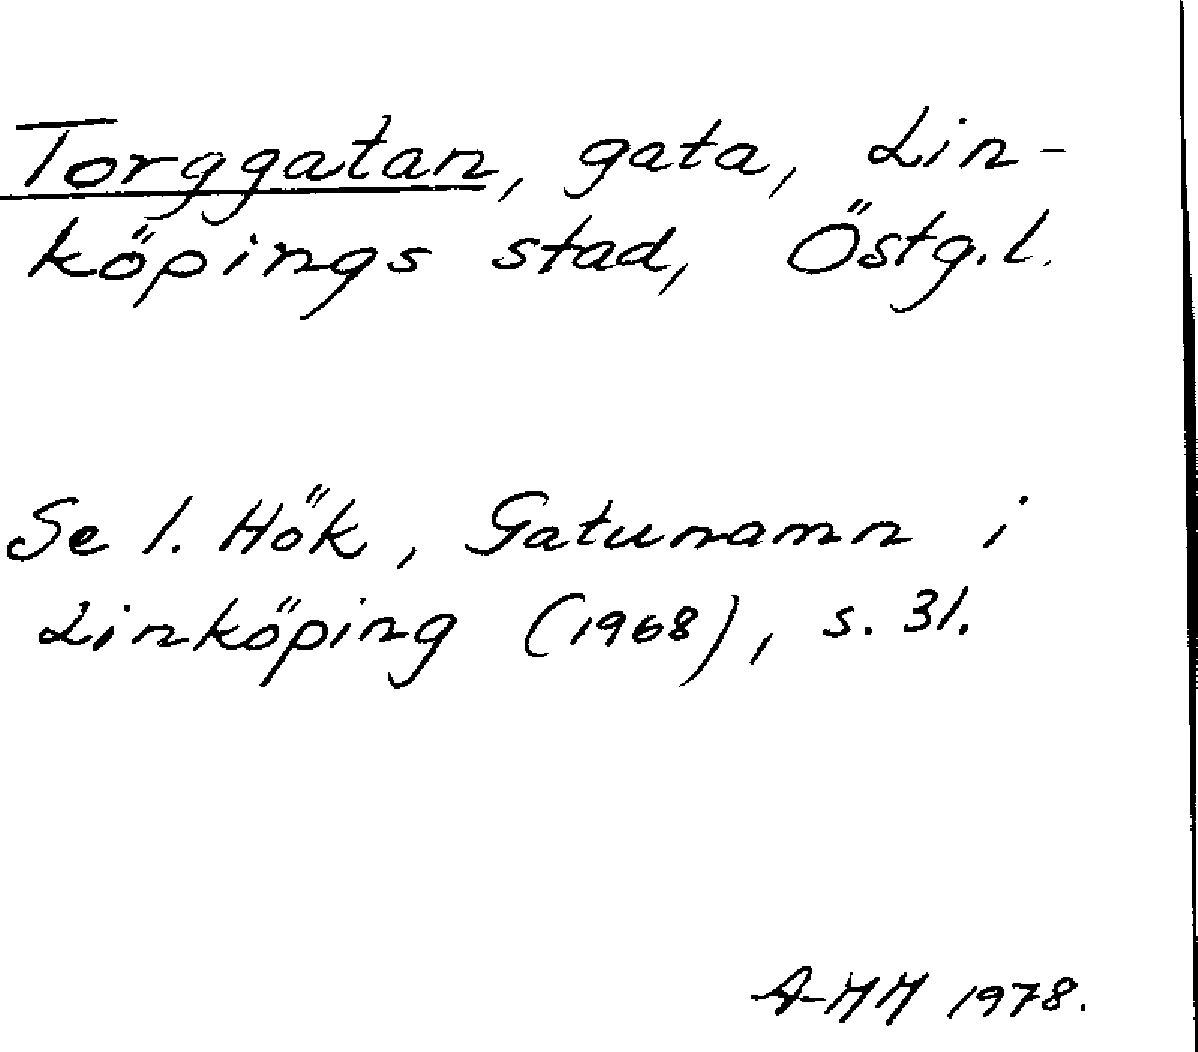 Torggatan, gata, Lin-
köpings stad, Östg.l.
Se I. Hök, Gatunamn i
Linköping (1968), s. 31.
A-MM 1978.